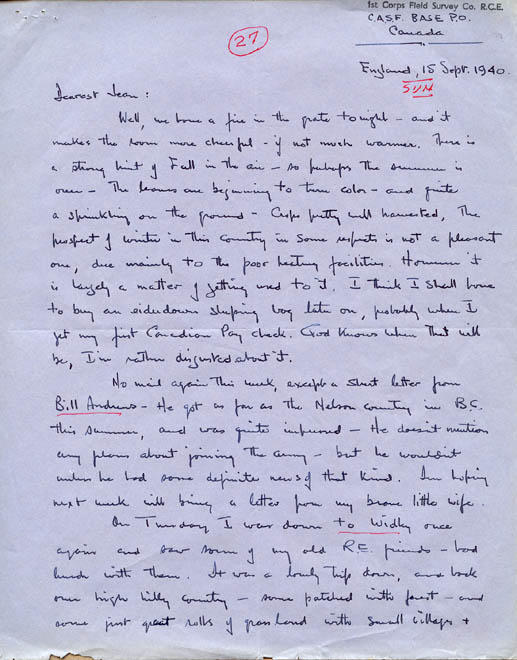 1st Corps Field Survey Co. R.C.E.
C.A.S.F. BASE P.O.
Canada
27
England, 15 Sept. 1940.
SUN
Dearest Jean:
Well, we have a fire in the grate tonight - and it
makes the room more cheerful - if not much warmer. There is
a strong hint of Fall in the air - so perhaps the summer is
over - The leaves are beginning to turn color - and quite
a sprinkling on the ground - Crops pretty well harvested, The
prospect of winter in this country in some respects is not a pleasant
one, due mainly to the poor heating facilities. However it
is largely a matter of getting used to it. I think I shall have
to buy an eiderdown sleeping bag late on, probably when I
get my first Canadian Pay check. God knows when that will
be, I'm rather disgusted about it.
No mail again this week, except a short letter from
Bill Andrews - He got as far as the Nelson country in B.C.
this summer, and was quite impressed - He doesn't mention
any plans about joining the army - but he wouldn't
unless he had some definite news of that kind. I'm hoping
next week will bring a letter from my brave little wife.
On Tuesday I was down to Widley once
again and saw some of my old R.E. friends - had
lunch with them. It was a lovely trip down, and back
over high hilly country - some patched with forest - and
some just great rolls of grassland with small villages +